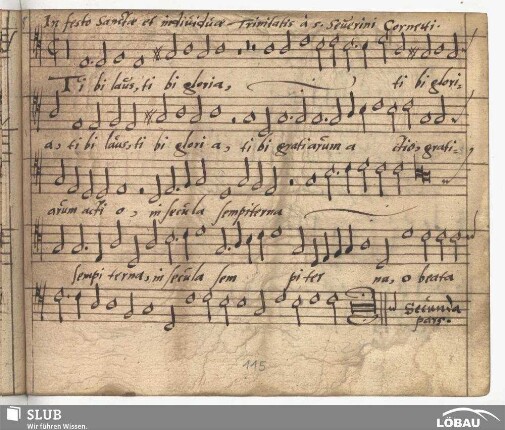 In festo Sanctæ et individuæ Trinitatis à 5. Severini Corneti.
Ti bi laus, ti bi gloria, ti bi glori-
a, ti bi laus, ti bi glori-a, ti bi gratiarum a ctio, grati-
arum acti o, in secula sempiterna
sempi terna, in secula sem pi ter na, o beata
Secunda
pars.
115
SLUB
Wir führen Wissen.
LÖBAU